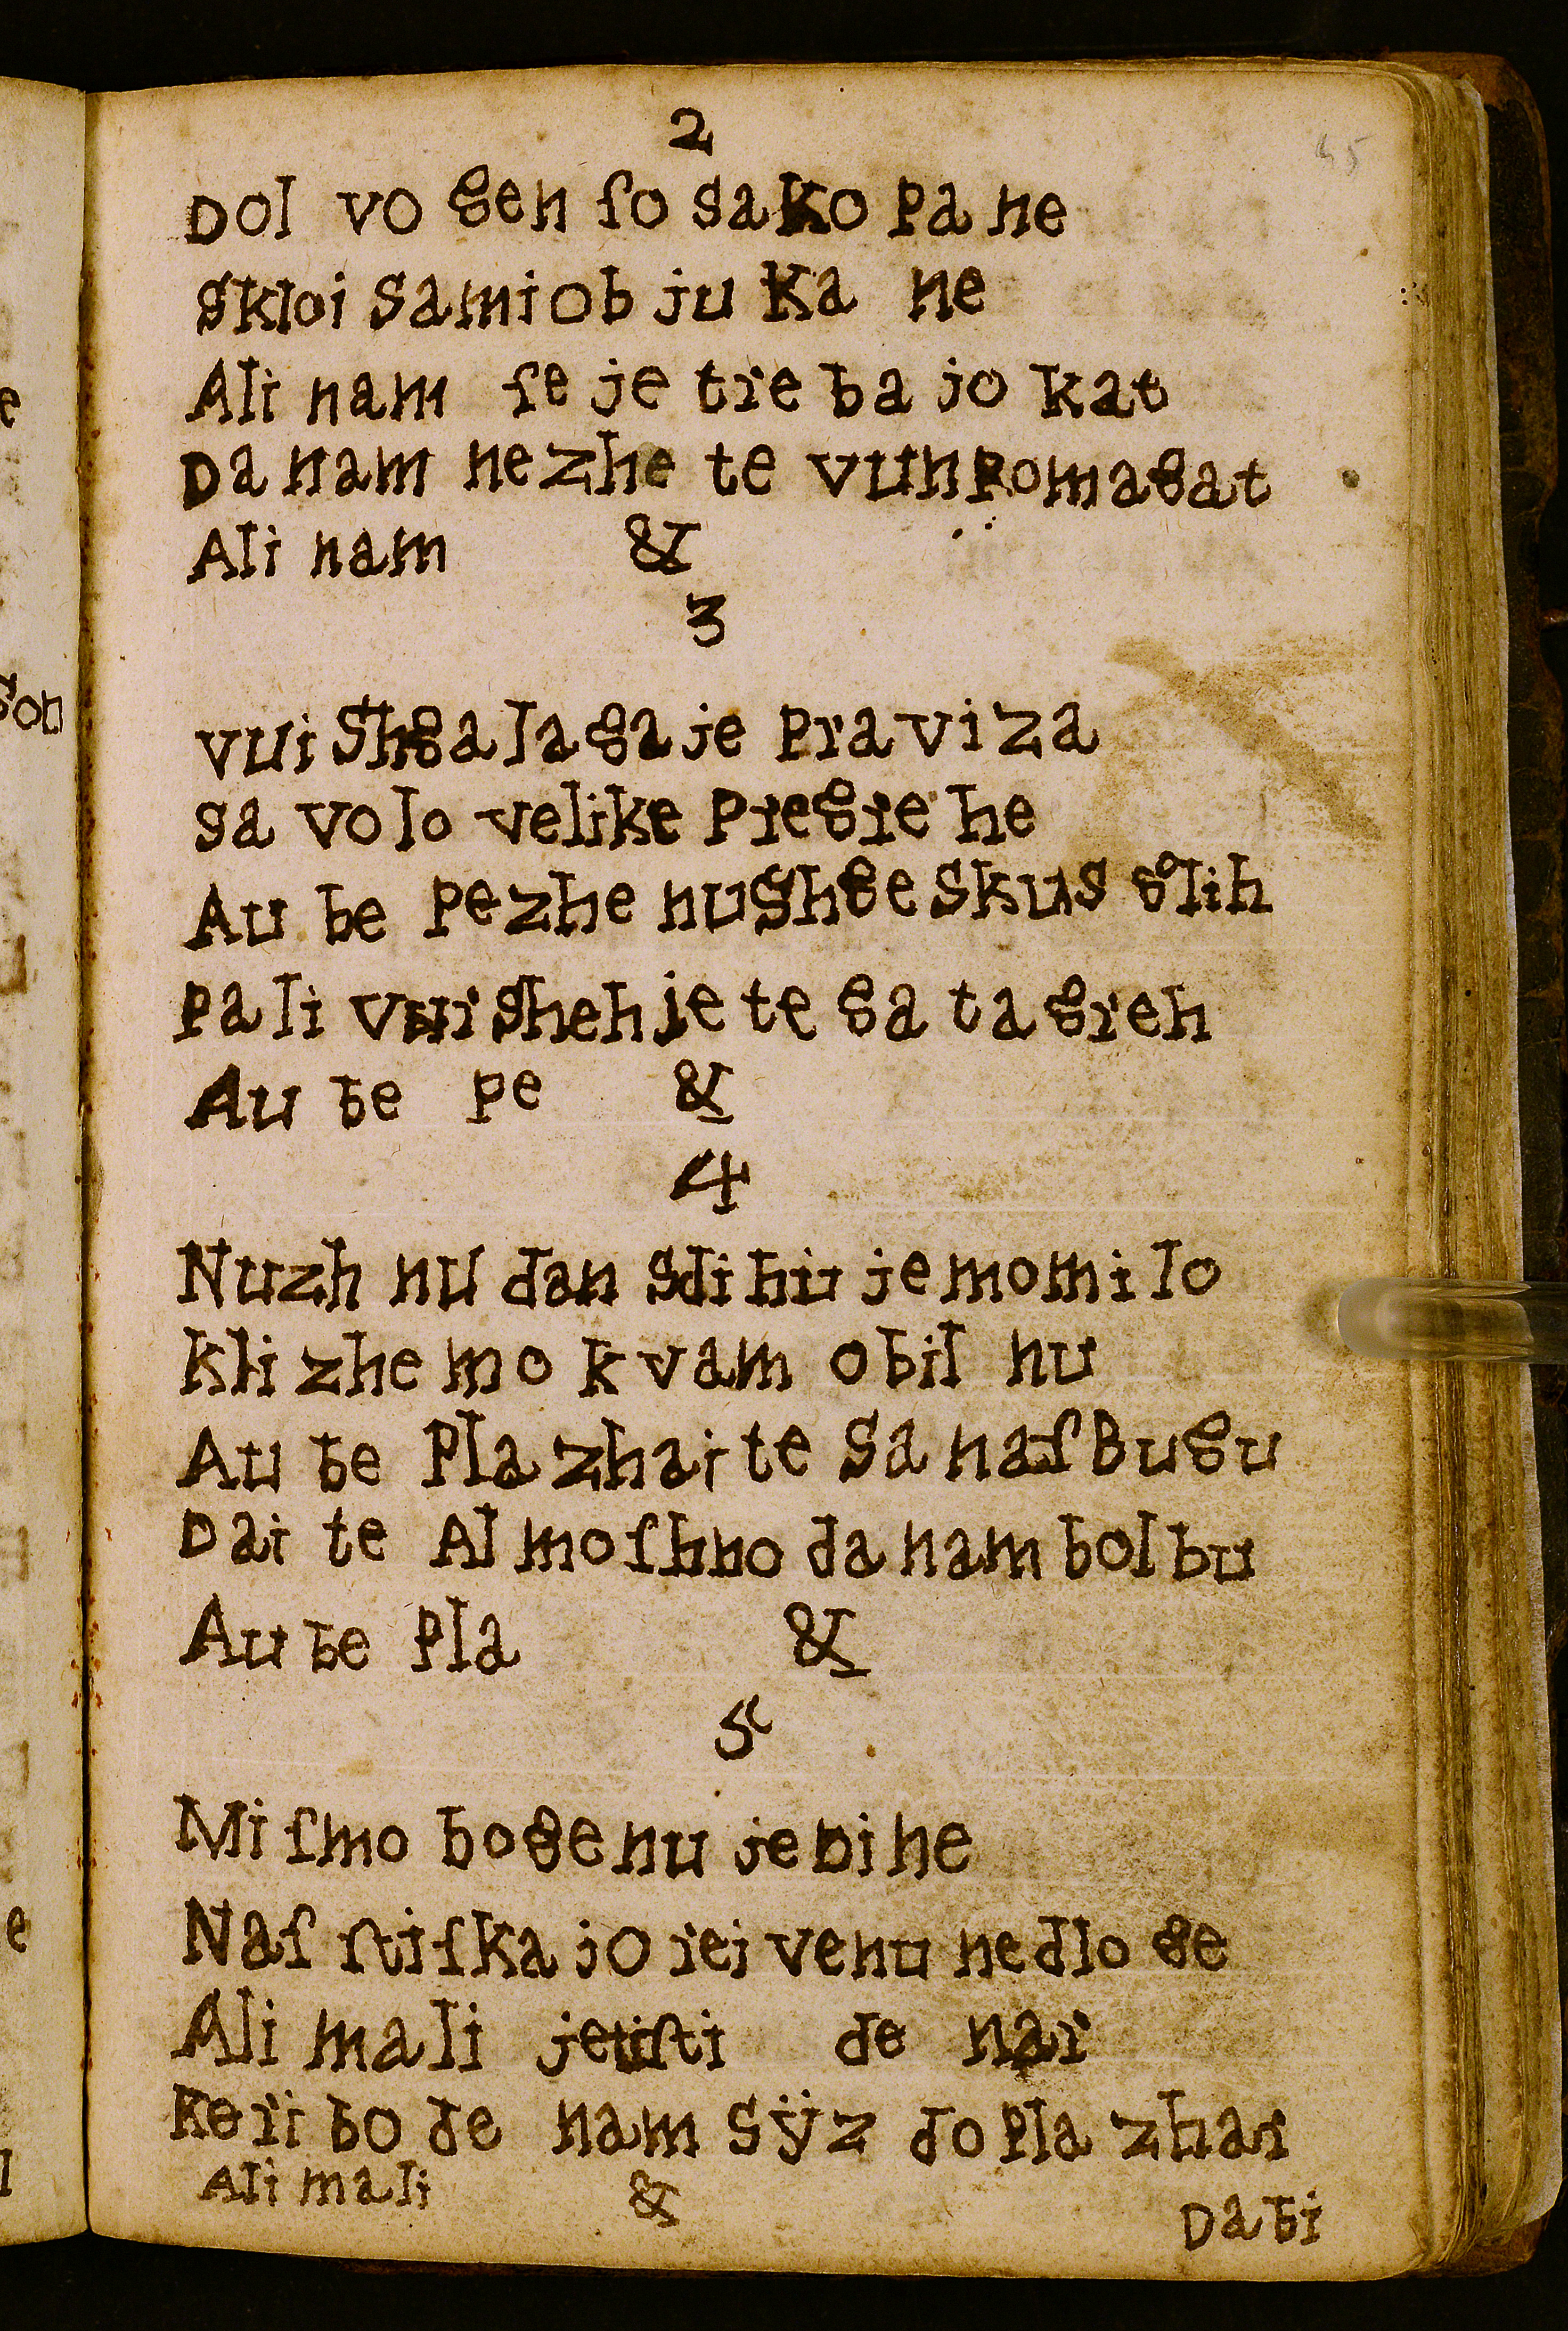 2
Dol vo gen ſo sako pa ne
skloi samiob ju ka ne
Ali nam ſe je tre ba jo kat
Da nam nezhe te vunpomagat
Ali nam &
3
vui shga la ga je pra vi za
sa vo lo velike pregre he
Au be pezhe nushge skus glih
pa li vuirshehje te ga ta greh
Au be pe &
4
Nuzh nu dan sdihu jemomi lo
kli zhe mo k vam obil nu
Au be pla zhai te sa naſ Bugu
Dai te Al moſhno da nam bolbu
Au be pla &
5
Mi ſmo bogenu jebi ne
Naſ ſtiſka jo rei venu nedlo ge
Ali ma li jetiſti de nar
keri bo de nam sÿz do pla zhar
Ali mali &
Da bi
45
e
gon
e